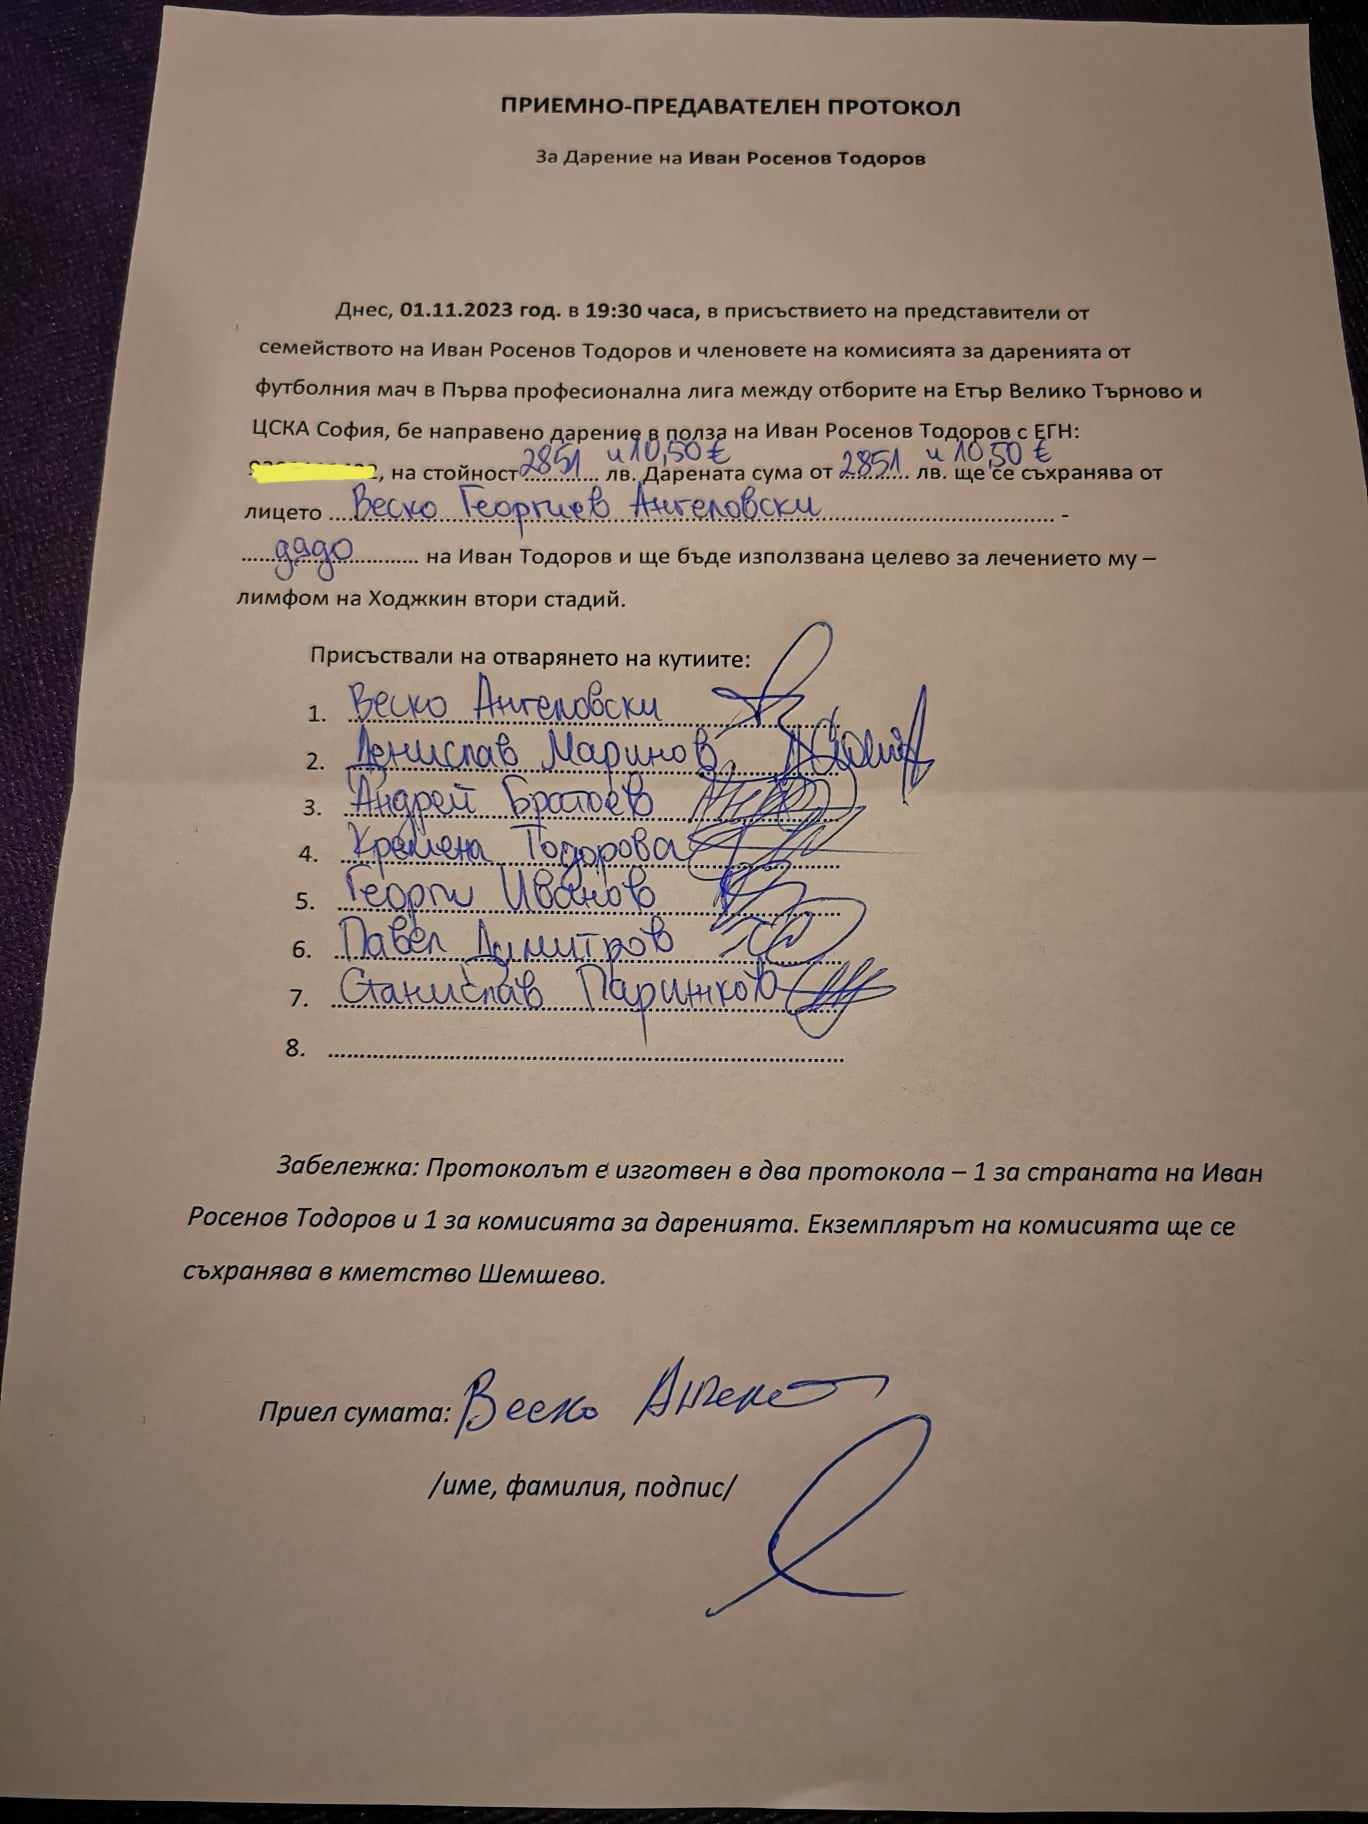 ПРИЕМНО-ПРЕДАВАТЕЛЕН ПРОТОКОЛ
За Дарение на Иван Росенов Тодоров
Днес, 01.11.2023 год. в 19:30 часа, в присъствието на представители от
семейството на Иван Росенов Тодоров и членовете на комисията за даренията от
футболния мач в Първа професионална лига между отборите на Етър Велико Търново и
ЦСКА София, бе направено дарение в полза на Иван Росенов Тодоров с ЕГН:
, на стойност 2851 и 10,50 € лв. Дарената сума от 2851 и 10,50 € лв. ще се съхранява от
лицето Веско Георгиев Ангеловски -
дядо на Иван Тодоров и ще бъде използвана целево за лечението му –
лимфом на Ходжкин втори стадий.
Присъствали на отварянето на кутиите:
1. Веско Ангеловски
2. Денислав Маринов
3. Андрей Братоев
4. Кремена Тодорова
5. Георги Иванов
6. Павел Димитров
7. Станислав Парижков
8.
Забележка: Протоколът е изготвен в два протокола – 1 за страната на Иван
Росенов Тодоров и 1 за комисията за даренията. Екземплярът на комисията ще се
съхранява в кметство Шемшево.
Приел сумата: Веско
/име, фамилия, подпис/